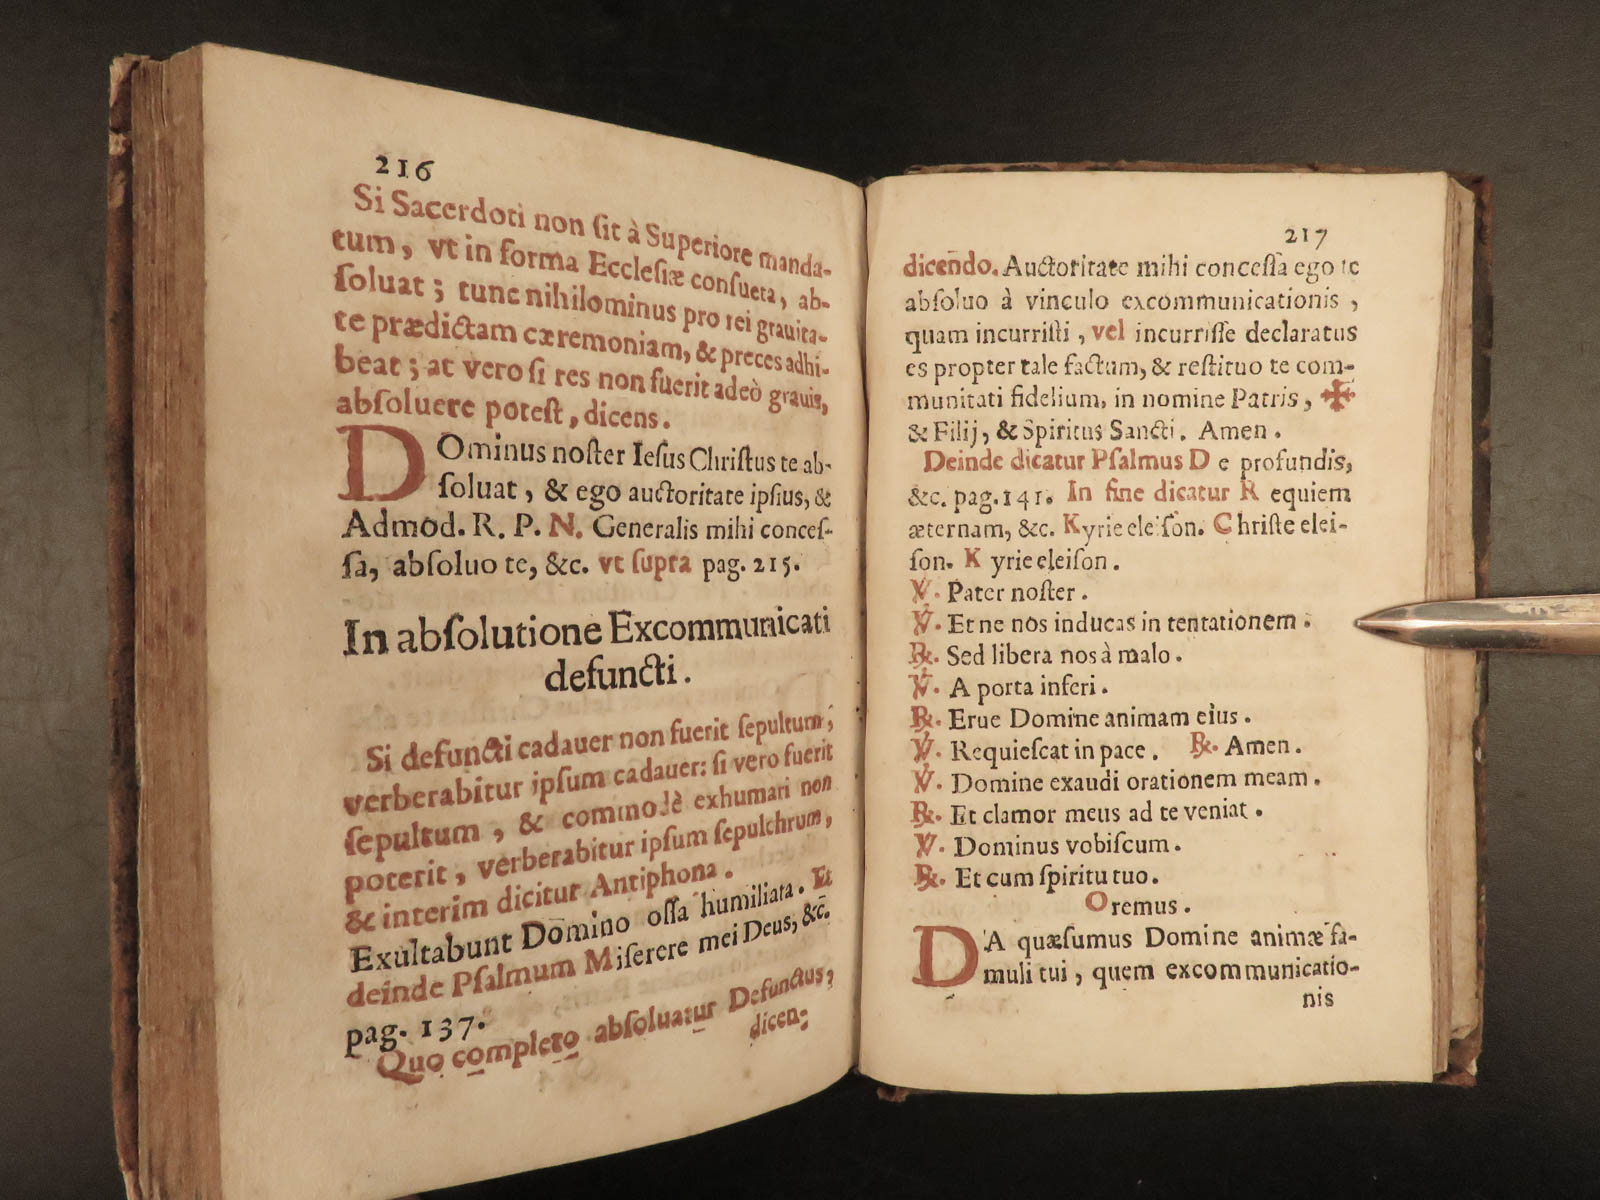 216
Si Sacerdoti non ſit à Superiore manda-
tum, vt in forma Eccleſiæ conſueta, ab-
ſoluat; tunc nihilominus pro rei grauita-
te prædictam cæremoniam, & preces adhi-
beat; at vero ſi res non fuerit adeò grauis,
abſoluere poteſt, dicens.
DOminus noſter Ieſus Chriſtus te ab-
ſoluat, & ego auctoritate ipſius, &
Admod. R. P. N. Generalis mihi conceſ-
ſa, abſoluo te, &c. vt ſupra pag. 215.
In abſolutione Excommunicati
defuncti.
Si defuncti cadauer non fuerit ſepultum,
verberabitur ipſum cadauer: ſi vero fuerit
ſepultum, & commodè exhumari non
poterit, verberabitur ipſum ſepulchrum,
& interim dicitur Antiphona.
Exultabunt Domino oſſa humiliata. Et
deinde Pſalmum Miſerere mei Deus, &c.
pag. 137.
Quo completo abſoluatur Defunctus,
dicen-
217
dicendo. Auctoritate mihi conceſſa ego te
abſoluo à vinculo excommunicationis,
quam incurriſti, vel incurriſſe declaratus
es propter tale factum, & reſtituo te com-
munitati fidelium, in nomine Patris, ✠
& Filij, & Spiritus Sancti. Amen.
Deinde dicatur Pſalmus De profundis,
&c. pag. 141. In fine dicatur Requiem
æternam, &c. Kyrie eleiſon. Chriſte elei-
ſon. Kyrie eleiſon.
℣. Pater noſter.
℣. Et ne nos inducas in tentationem.
℟. Sed libera nos à malo.
℣. A porta inferi.
℟. Erue Domine animam eius.
℣. Requieſcat in pace. ℟. Amen.
℣. Domine exaudi orationem meam.
℟. Et clamor meus ad te veniat.
℣. Dominus vobiſcum.
℟. Et cum ſpiritu tuo.
Oremus.
DA quæſumus Domine animæ fa-
muli tui, quem excommunicatio-
nis